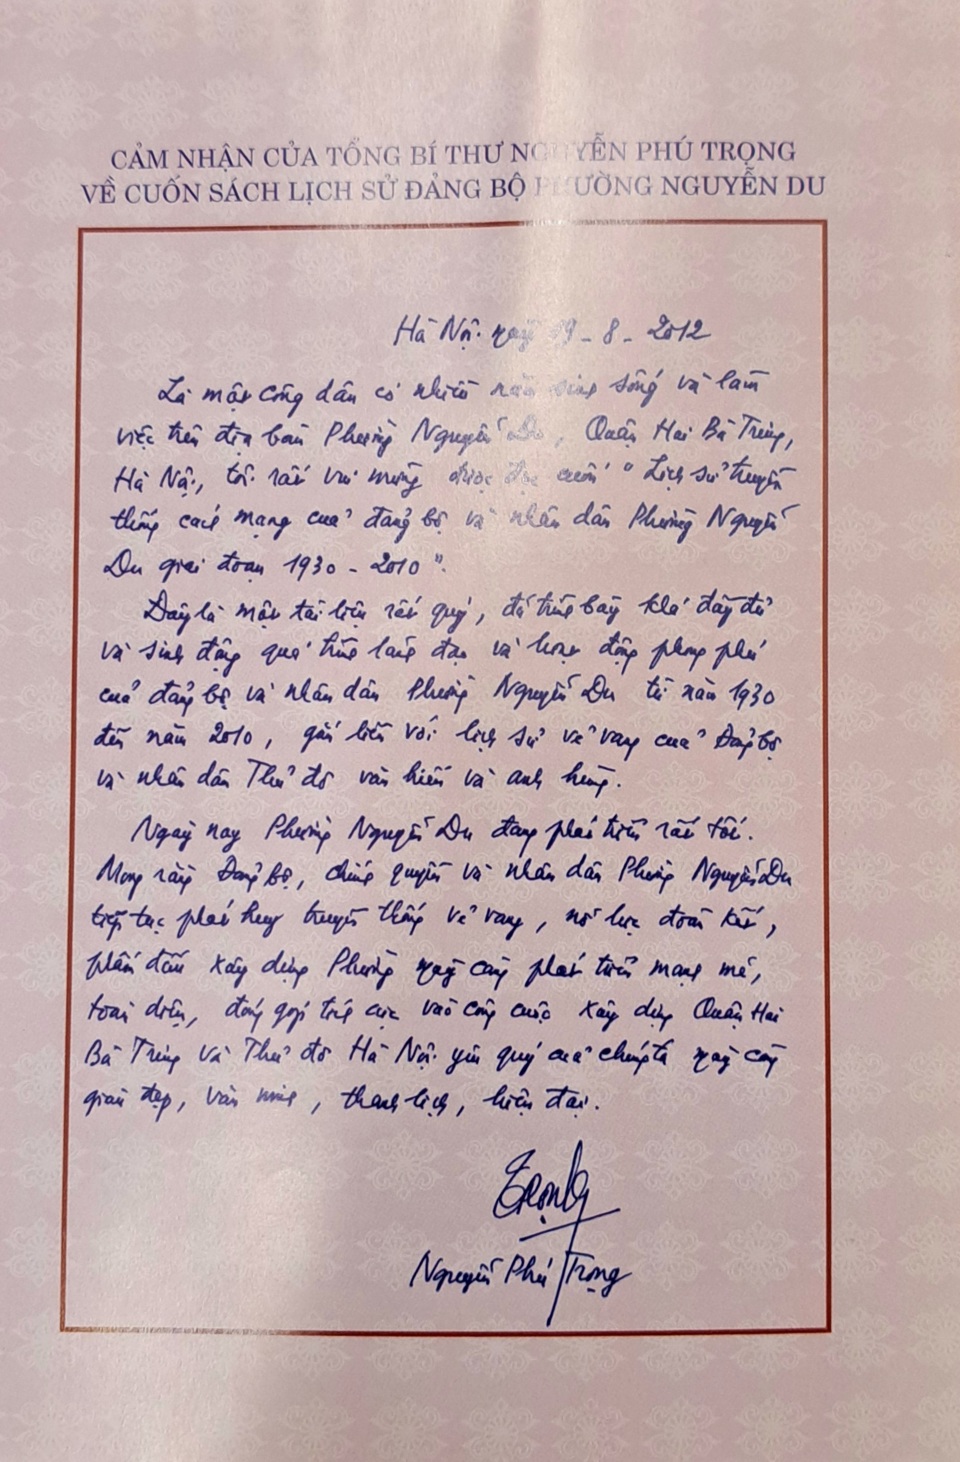 CẢM NHẬN CỦA TỔNG BÍ THƯ NGUYỄN PHÚ TRỌNG
VỀ CUỐN SÁCH LỊCH SỬ ĐẢNG BỘ PHƯỜNG NGUYỄN DU
Hà Nội, ngày 19-8-2012
Là một công dân có nhiều năm sinh sống và làm
việc trên địa bàn Phường Nguyễn Du, Quận Hai Bà Trưng,
Hà Nội, tôi rất vui mừng được đọc cuốn "Lịch sử truyền
thống cách mạng của đảng bộ và nhân dân Phường Nguyễn
Du giai đoạn 1930-2010".
Đây là một tài liệu rất quý, đã trình bày khá đầy đủ
và sinh động quá trình lãnh đạo và hoạt động phong phú
của đảng bộ và nhân dân Phường Nguyễn Du từ năm 1930
đến năm 2010, gắn liền với lịch sử vẻ vang của Đảng bộ
và nhân dân Thủ đô văn hiến và anh hùng.
Ngày nay Phường Nguyễn Du đang phát triển rất tốt.
Mong rằng Đảng bộ, chính quyền và nhân dân Phường Nguyễn Du
tiếp tục phát huy truyền thống vẻ vang, nỗ lực đoàn kết,
phấn đấu xây dựng Phường ngày càng phát triển mạnh mẽ,
toàn diện, đóng góp tích cực vào công cuộc xây dựng Quận Hai
Bà Trưng và Thủ đô Hà Nội yêu quý của chúng ta ngày càng
giàu đẹp, văn minh, thanh lịch, hiện đại.
Trọng
Nguyễn Phú Trọng